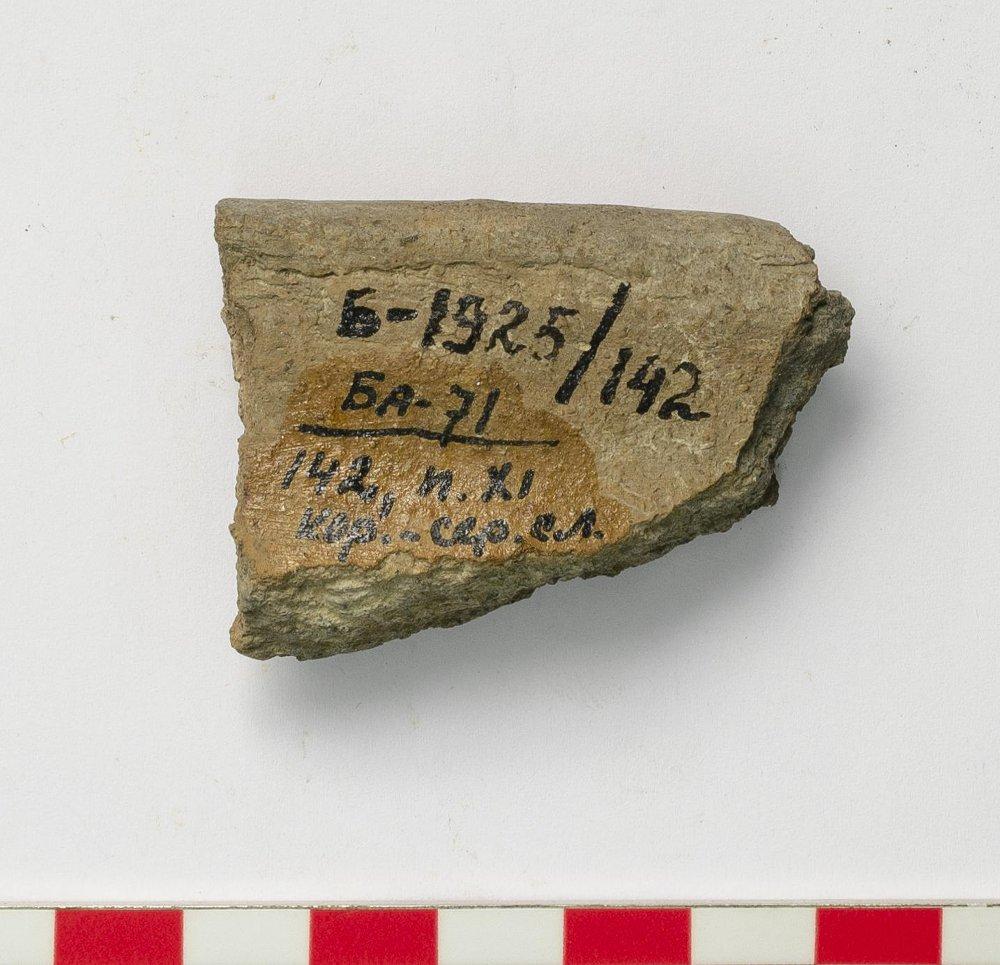 Б-1925/142
БА-71
142, п. XI
кор.-сер. сл.